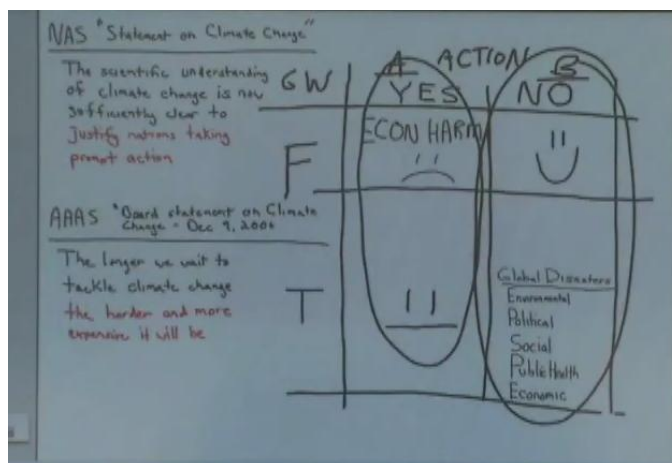 NAS "Statement on Climate Change"
The scientific understanding
of climate change is now
sufficiently clear to
justify nations taking
prompt action
AAAS "Board statement on Climate
Change - Dec 9, 2006
The longer we wait to
tackle climate change
the harder and more
expensive it will be
ACTION
A B
GW YES NO
F ECON HARM
T
Global Disasters
Environmental
Political
Social
Public Health
Economic